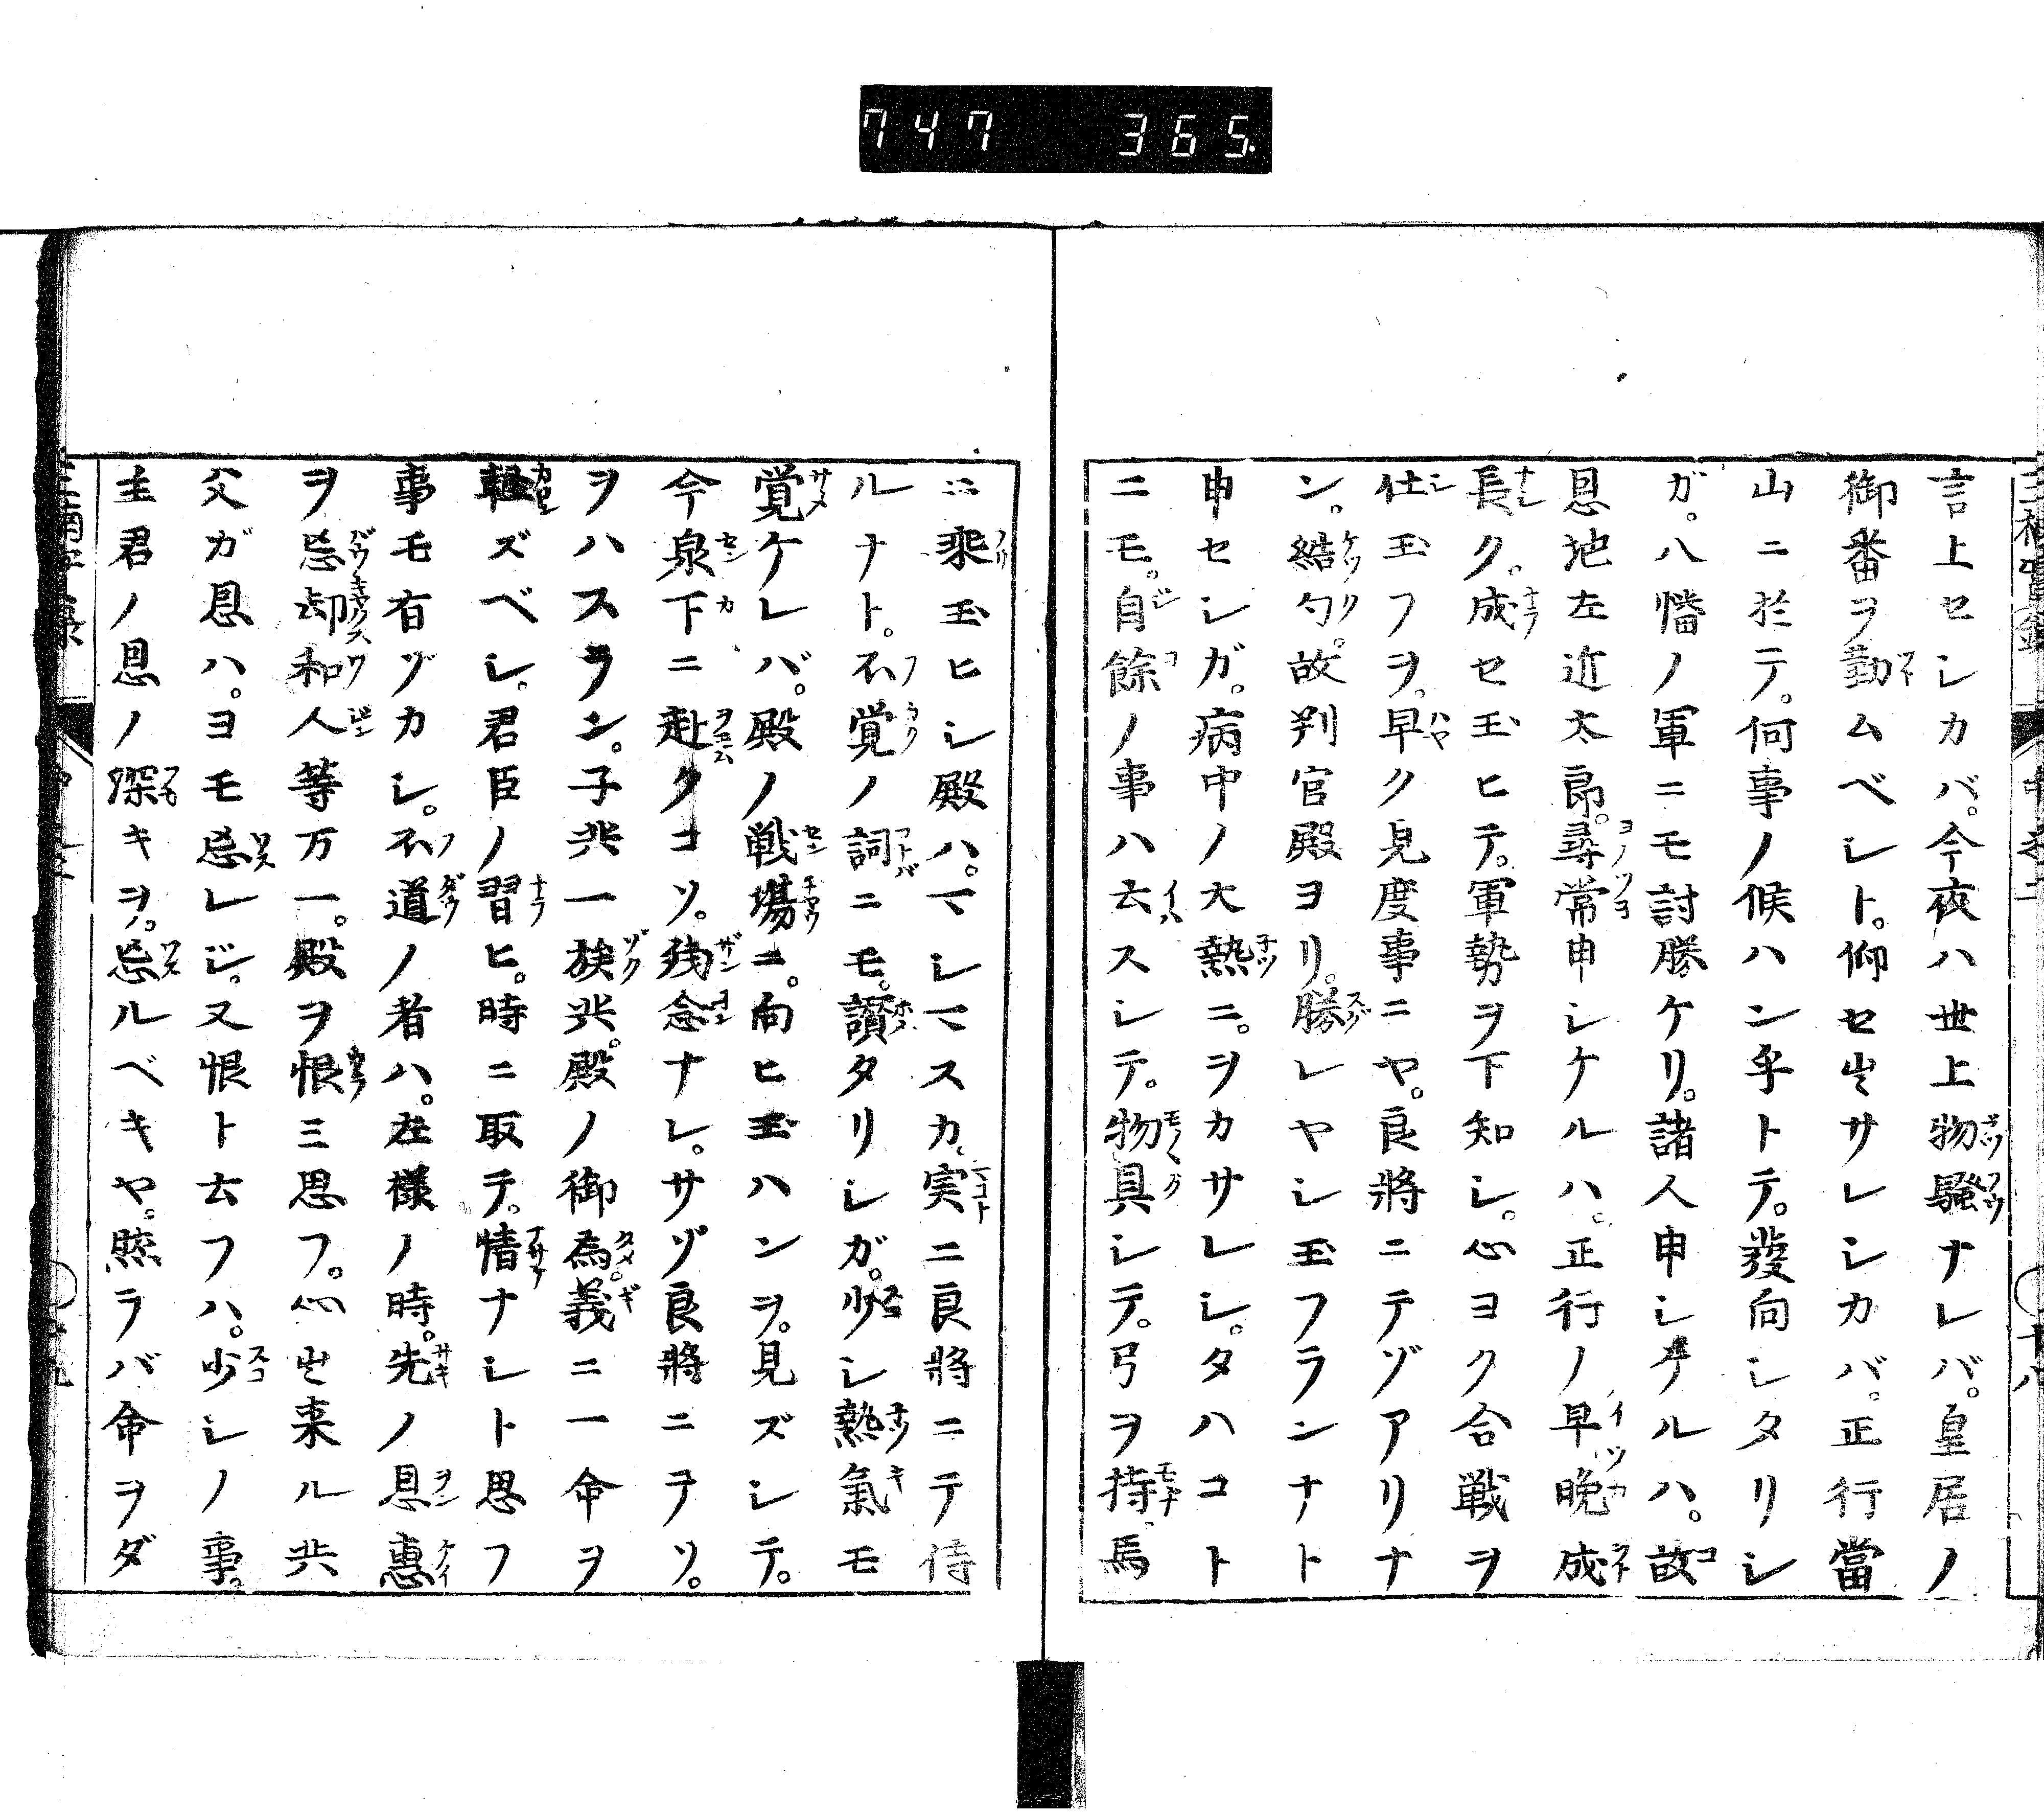 747 365
言上セシカバ。今夜ハ世上物騒ナレバ。皇居ノ
御番ヲ勤ムベシト。仰セ出サレシカバ。正行當
山ニ於テ。何事ノ候ハン乎トテ。發向シタリシ
ガ。八幡ノ軍ニモ討勝ケリ。諸人申シケルハ。故
恩地左近太郎。尋常申シケルハ。正行ノ早晩成
長ク。成セ玉ヒテ。軍勢ヲ下知シ。心ヨク合戦ヲ
仕玉フヲ。早ク見度事ニヤ。良將ニテゾアリナ
ン。結句。故判官殿ヨリ。勝レヤシ玉フランナト
申セシガ。病中ノ大熱ニ。ヲカサレシ。タハコト
ニモ。自餘ノ事ハ云スシテ。物具シテ。弓ヲ持。馬
ニ乘玉ヒシ殿ハ。マシマスカ。実ニ良將ニテ侍
ルナト。不覚ノ詞ニモ。讃タリシガ。少シ熱氣モ
覚ケレバ。殿ノ戦場ニ。向ヒ玉ハンヲ。見ズシテ。
今泉下ニ赴クコソ。残念ナレ。サゾ良將ニヲソ。
ヲハスラン。子共一族共。殿ノ御為。義ニ一命ヲ
軽ズベシ。君臣ノ習ヒ。時ニ取テ。情ナシト思フ
事モ有ヅカシ。不道ノ者ハ。左様ノ時。先ノ恩惠
ヲ忘却和人等万一。殿ヲ恨ミ思フ。心出来ル共
父ガ恩ハ。ヨモ忘レジ。又恨ト云フハ。少シノ事。
主君ノ恩ノ深キヲ。忘ルベキヤ。然ラバ命ヲダ